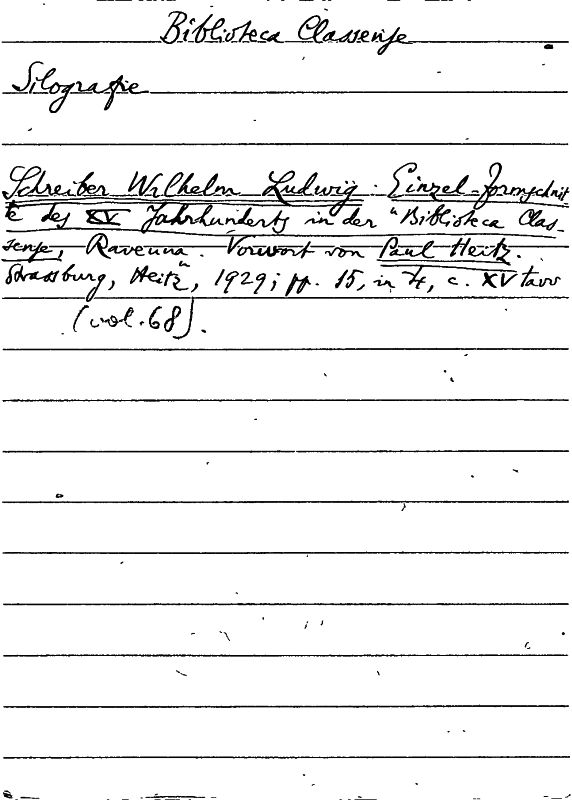 Biblioteca Classense
Silografie
Schreiber Wilhelm Ludwig: Einzel-Formschnit
te des XV Jahrhunderts in der "Biblioteca Clas-
sense, Ravenna. Vorwort von Paul Heitz.
Strassburg, Heitz", 1929; pp. 15, in 4, c. XV tavv
(vol. 68).